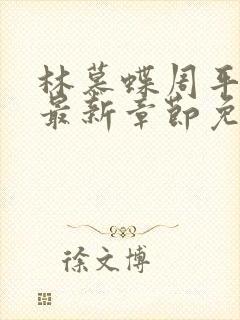 林慕蝶周平
最新章节免
徐文博